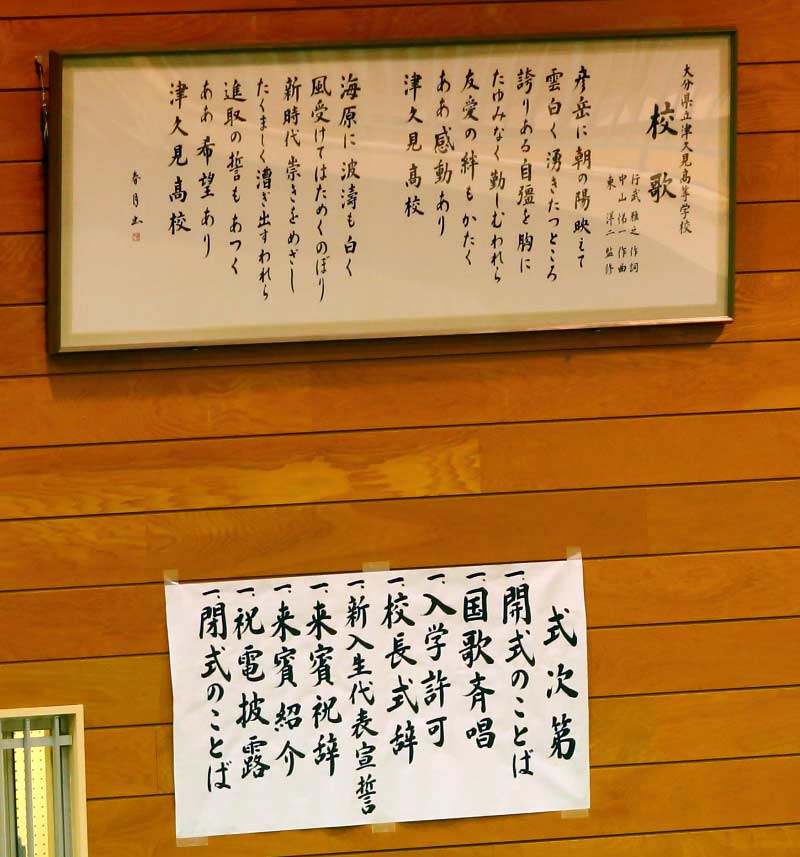 大分県立津久見高等学校
校歌
行武雅之作詞
中山佑一作曲
東洋二監修
彦岳に朝の陽映えて
雲白く湧きたつところ
誇りある自彊を胸に
たゆみなく勤しむわれら
友愛の絆もかたく
ああ感動あり
津久見高校
海原に波濤も白く
風受けてはためくのぼり
新時代崇きをめざし
たくましく漕ぎ出すわれら
進取の誓もあつく
ああ希望あり
津久見高校
春月書
式次第
一、開式のことば
一、国歌斉唱
一、入学許可
一、校長式辞
一、新入生代表宣誓
一、来賓祝辞
一、来賓紹介
一、祝電披露
一、閉式のことば